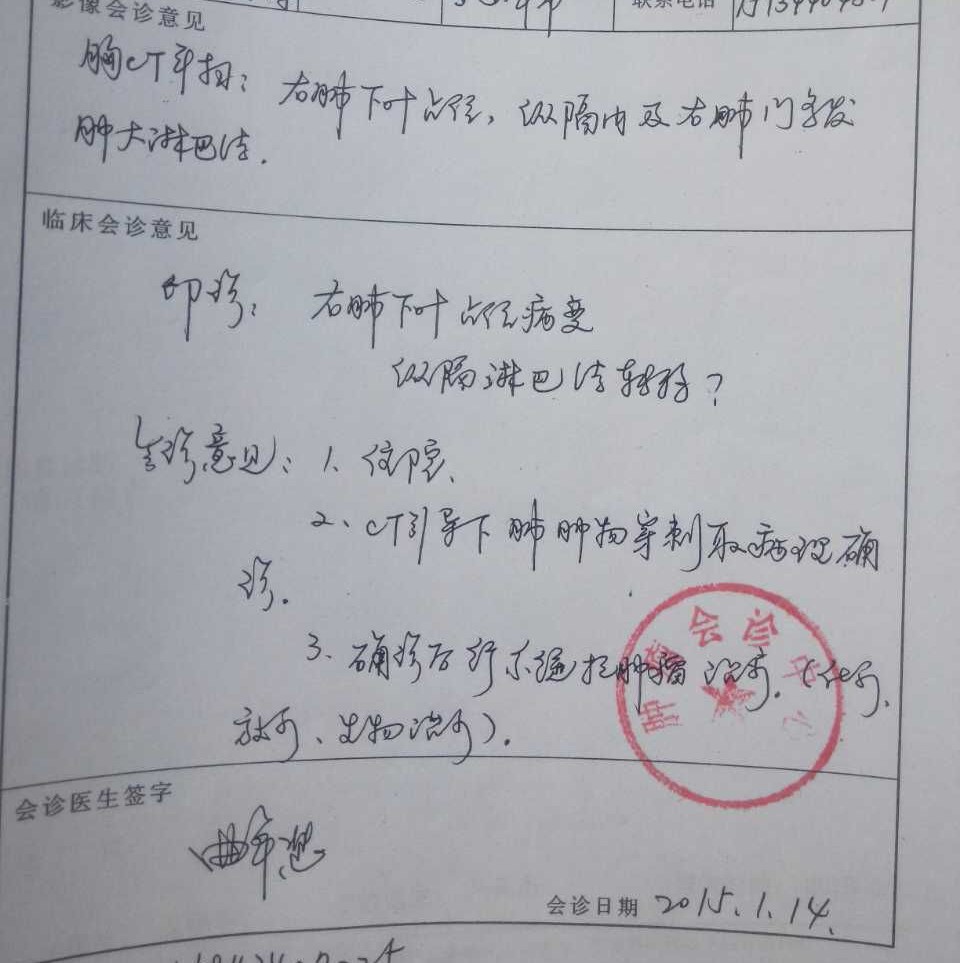 影像会诊意见
联系电话
胸CT平扫：右肺下叶占位，纵隔内及右肺门多发
肿大淋巴结.
临床会诊意见
印诊： 右肺下叶占位病变
纵隔淋巴结转移？
会诊意见：1、住院、
2、CT引导下肺肿物穿刺取病理确
诊.
3、确诊后行系统抗肿瘤治疗.（化疗、
放疗、生物治疗）.
肿瘤会诊中心
会诊医生签字
会诊日期 2015.1.14.